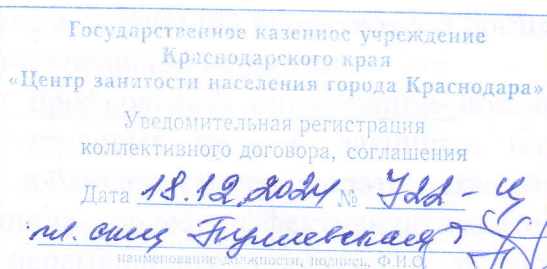 Государственное казенное учреждение
Краснодарского края
«Центр занятости населения города Краснодара»
Уведомительная регистрация
коллективного договора, соглашения
Дата 18.12.2024 № 722-Ц
гл. спец
наименование должности, подпись, Ф.И.О.